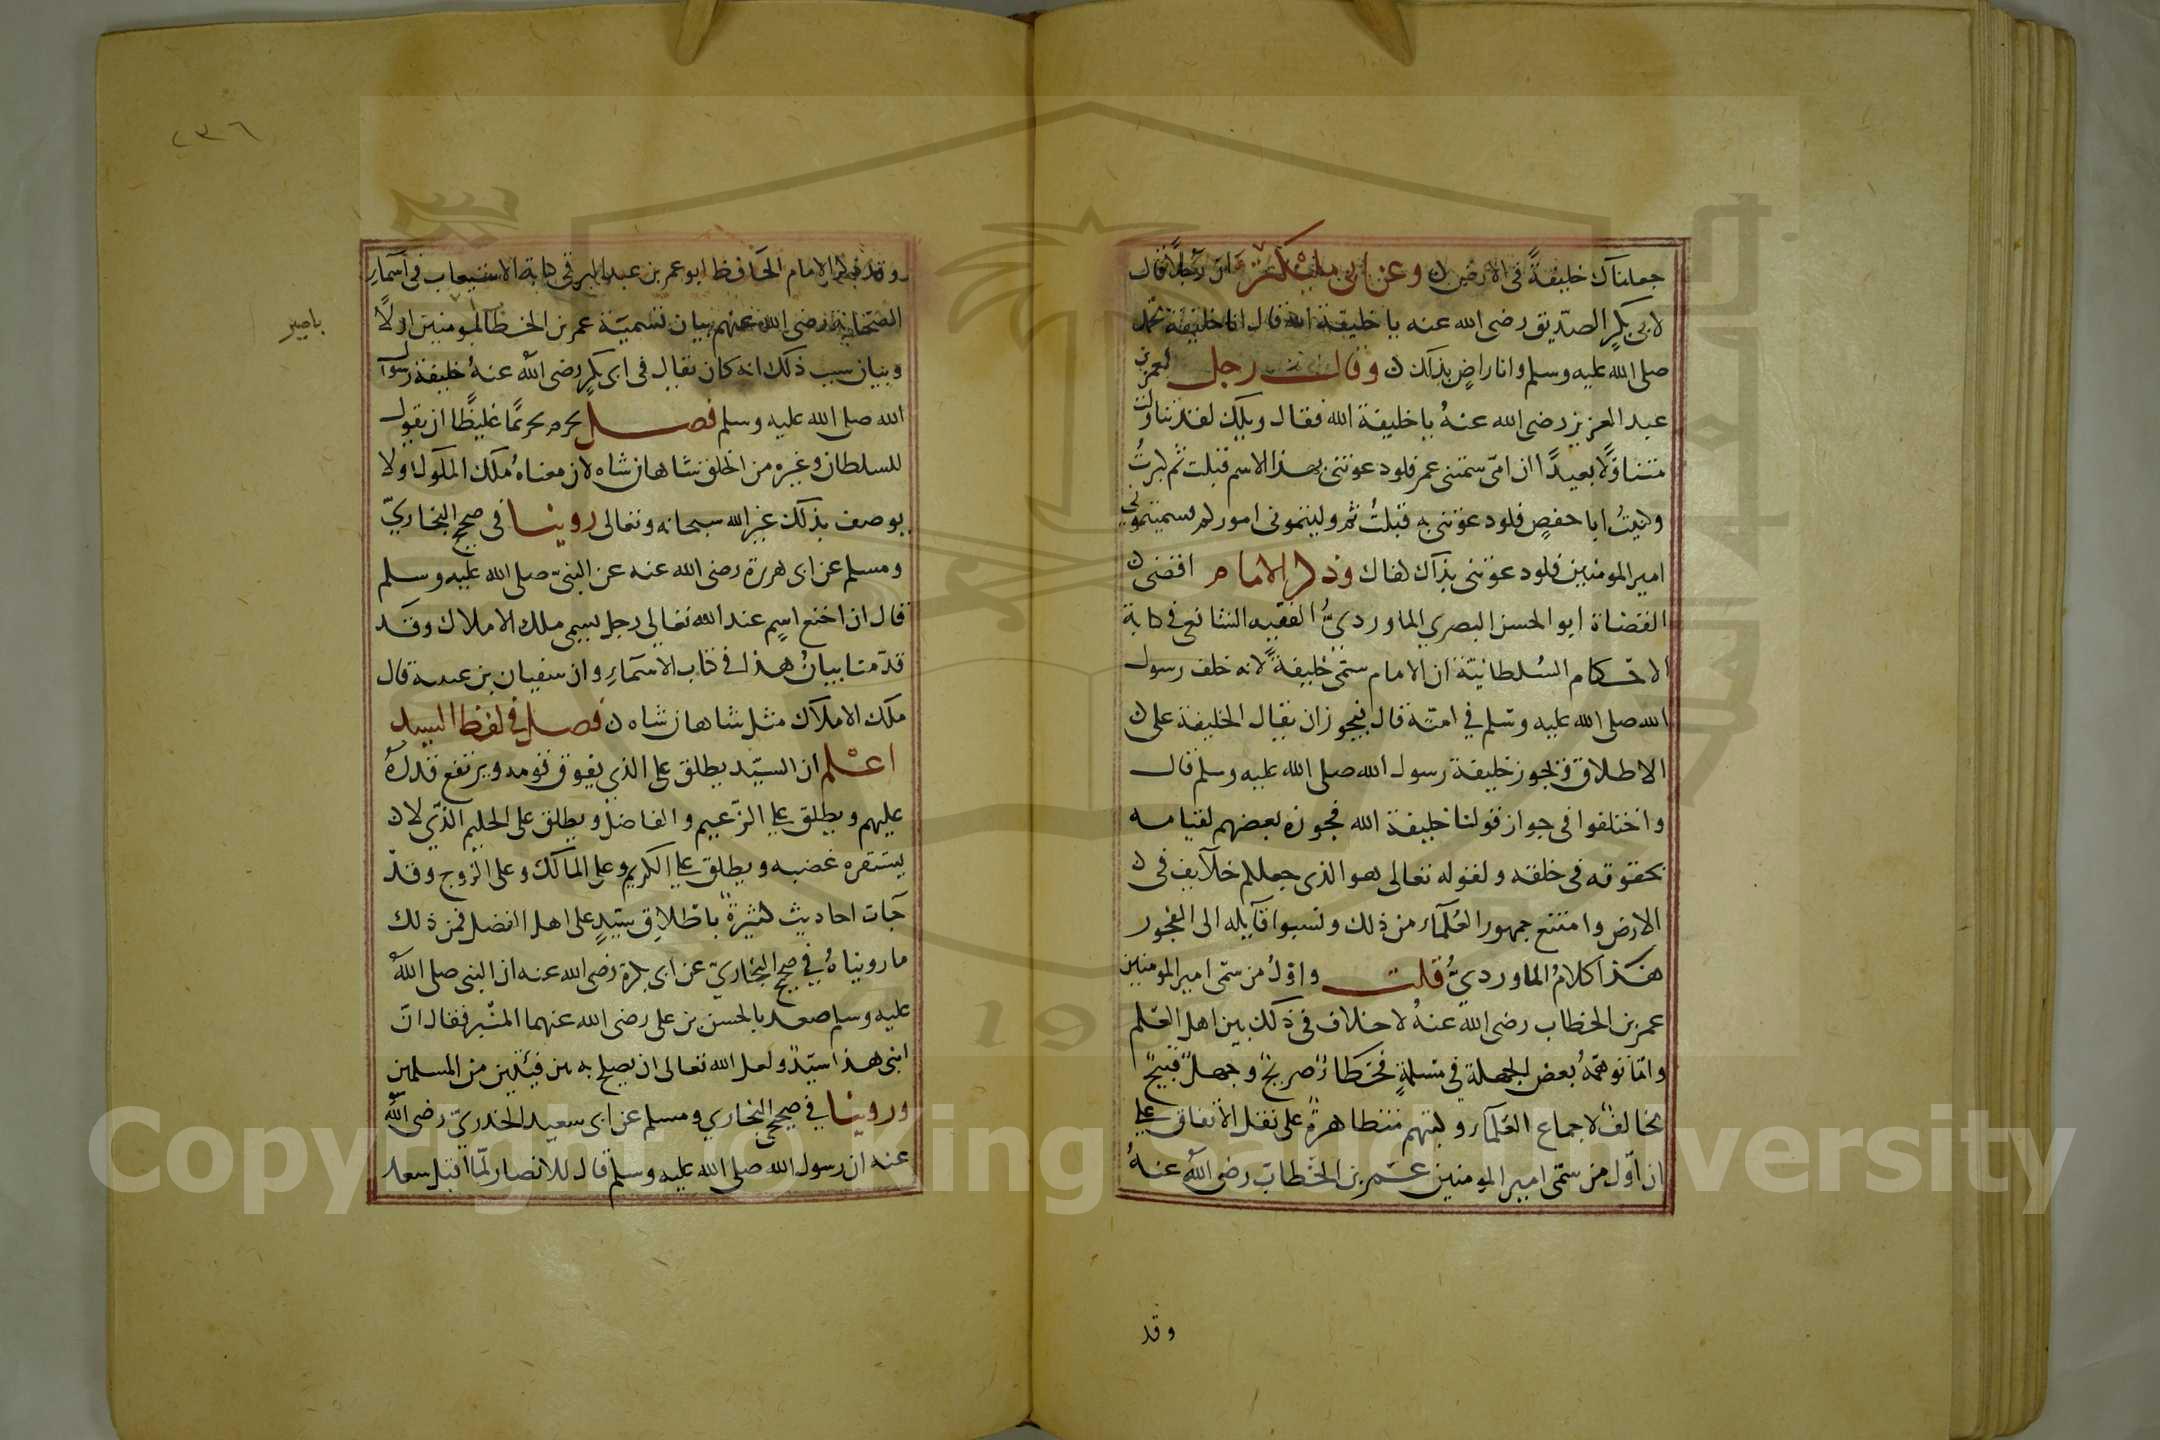 جعلناك خليفةً في الارض وعن ابن ابي مليكة ان رجلاً قال
لابي بكرٍ الصدّيق رضى الله عنه يا خليفة الله قال انا خليفة محمد
صلى الله عليه وسلم وانا راضٍ بذلك وقال رجل لعمر بن
عبد العزيز رضى الله عنهُ يا خليفة الله فقال ويلك لقد تناولت
متناوَلًا بعيدًا ان امّى سمتنى عمر فلو دعوتنى بهذا الاسم قبلت ثم كبرتُ
وكنيتُ ابا حفصٍ فلو دعوتنى به قبلتُ ثم وليتمونى اموركم فسميتمونى
امير المومنين فلو دعوتنى بذاك كفاك وذكر الامام اقضى
القضاة ابو الحسن البصرى الماورديُّ الفقيه الشافعى فى كتابه
الاحكام السُلطانيّة ان الامام سمّى خليفةً لانه خلف رسول
الله صلى الله عليه وسلم في امتّه قال فيجوز ان يقال الخليفة على
الاطلاق ويجوز خليفة رسول الله صلى الله عليه وسلم قال
واختلفوا فى جواز قولنا خليفة الله فجوزه بعضهم لقيامه
بحقوقه فى خلقه ولقوله تعالى هو الذى جعلكم خلآيف فى
الارض وامتنع جمهور العُلمآء من ذلك ونسبوا قآيله الى الفجور
هذا كلامُ الماورديُّ قلت واوّلُ من سمّى امير المومنين
عمر بن الخطاب رضى الله عنهُ لا خلاف فى ذلك بين اهل العلم
وامّا ما توهّمهُ بعض الجهلة في مسلمةٍ فخطاءٌ صريحٌ وجهلٌ قبيحٌ
مخالفٌ لاجماع العُلمآء وكتبهم متظاهرةٌ على نقل الاتفاق على
ان اوّل من سمّى امير المومنين عمر بن الخطاب رضى الله عنهُ
وقد
٢٣٦
وقد ذكر الامام الحافظ ابو عمر بن عبد البر فى كتابه الاستيعاب فى اسمآء
الصحابة رضى الله عنهم بيان تسميّة عمر بن الخطاب امير المومنين اولًا
وبيان سبب ذلك انه كان يقال فى ابى بكرٍ رضى الله عنهُ خليفة رسول
الله صلى الله عليه وسلم فصل يحرم تحريمًا غليظًا ان يقول
للسلطان وغيره من الخلق شاهان شاه لان معناهُ ملك الملوك ولا
يوصف بذلك غير الله سبحانه وتعالى روينا فى صحيح البخاريّ
ومسلم عن ابى هريرة رضى الله عنه عن النبىّ صلى الله عليه وسلم
قال ان اخنع اسمٍ عند الله تعالى رجل يسمى ملك الاملاك وقد
قدّمنا بيانُ هذا في كتاب الاسمآء وان سفيان بن عيينة قال
ملك الاملاك مثل شاهان شاه فصل فى لفظ السيد
اعلم ان السيّد يطلق على الذي يفوق قومه ويرتفع قدرهُ
عليهم ويطلق على الزّعيم والفاضل ويطلق على الحليم الذّي لا
يستفزه غضبه ويطلق على الكريم وعلى المالك وعلى الزوج وقد
جآت احاديث كثيرةٌ باطلاق سيّدٍ على اهل الفضل فمن ذلك
ما رويناهُ فى صحيح البخاريّ عن ابى بكرة رضى الله عنه ان النبى صلى الله
عليه وسلم صعد بالحسن بن على رضى الله عنهما المنبر فقال انّ
ابنى هذا سيّدٌ ولعل الله تعالى ان يصلح به بين فيئتين من المسلمين
وروينا فى صحيح البخاري ومسلم عن ابى سعيد الخدريّ رضى الله
عنه ان رسول الله صلى الله عليه وسلم قال للانصار لمّا اقبل سعد
Copyright © King Saud University